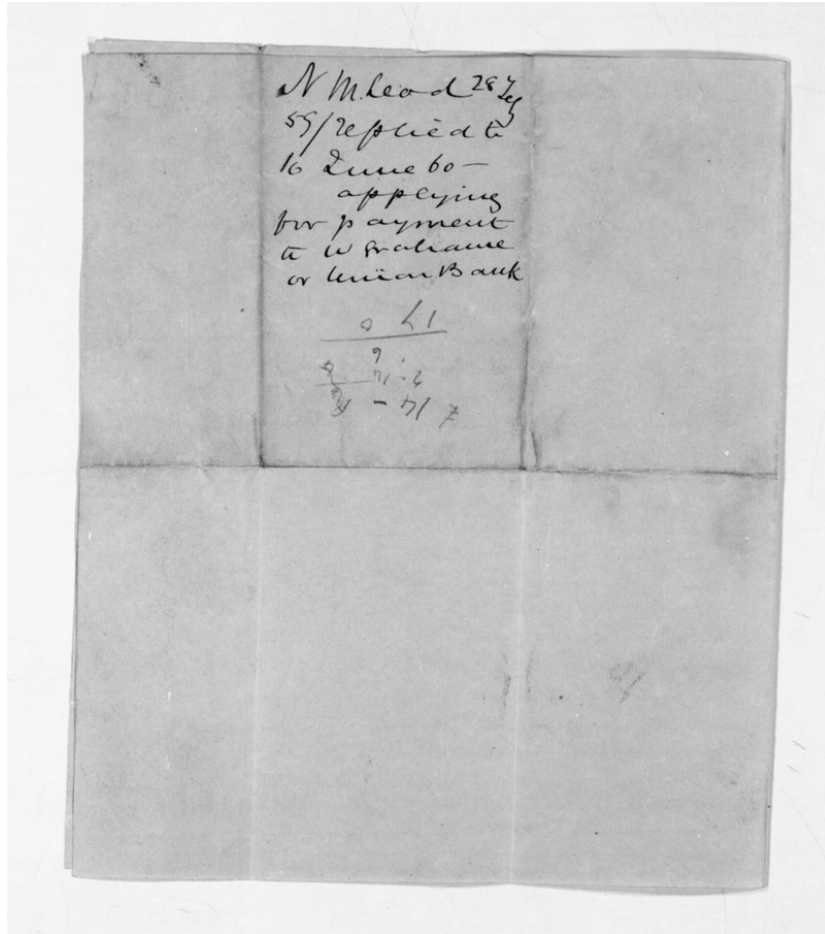 N McLeod 28
59/replied to
16 June 60 —
applying
for payment
to W Grahame
or Union Bank